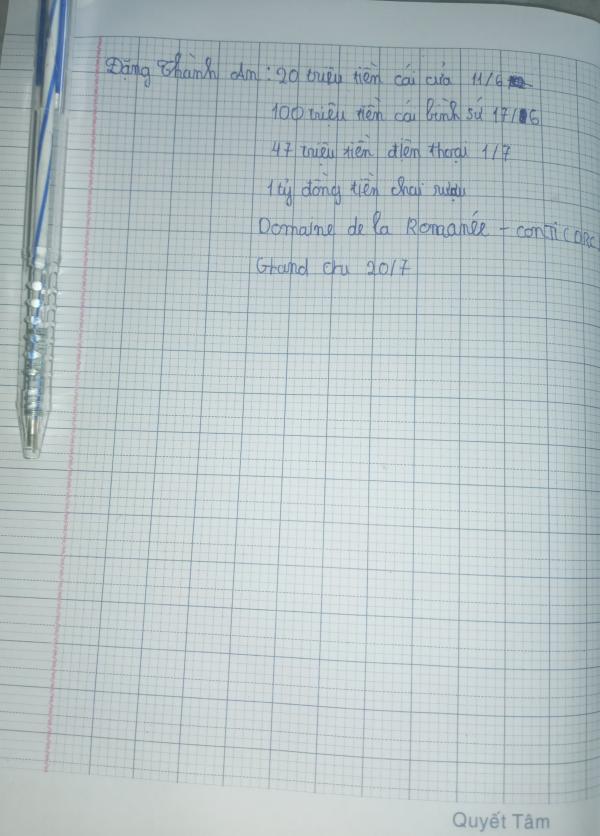 Đặng Thành An : 20 triệu tiền cái cửa 11/6
100 triệu tiền cái bình sứ 17/6
47 triệu tiền điện thoại 1/7
1 tỷ đồng tiền chai rượu
Domaine de la Romanée - conti (DRC)
Grand cru 20/7
Quyết Tâm